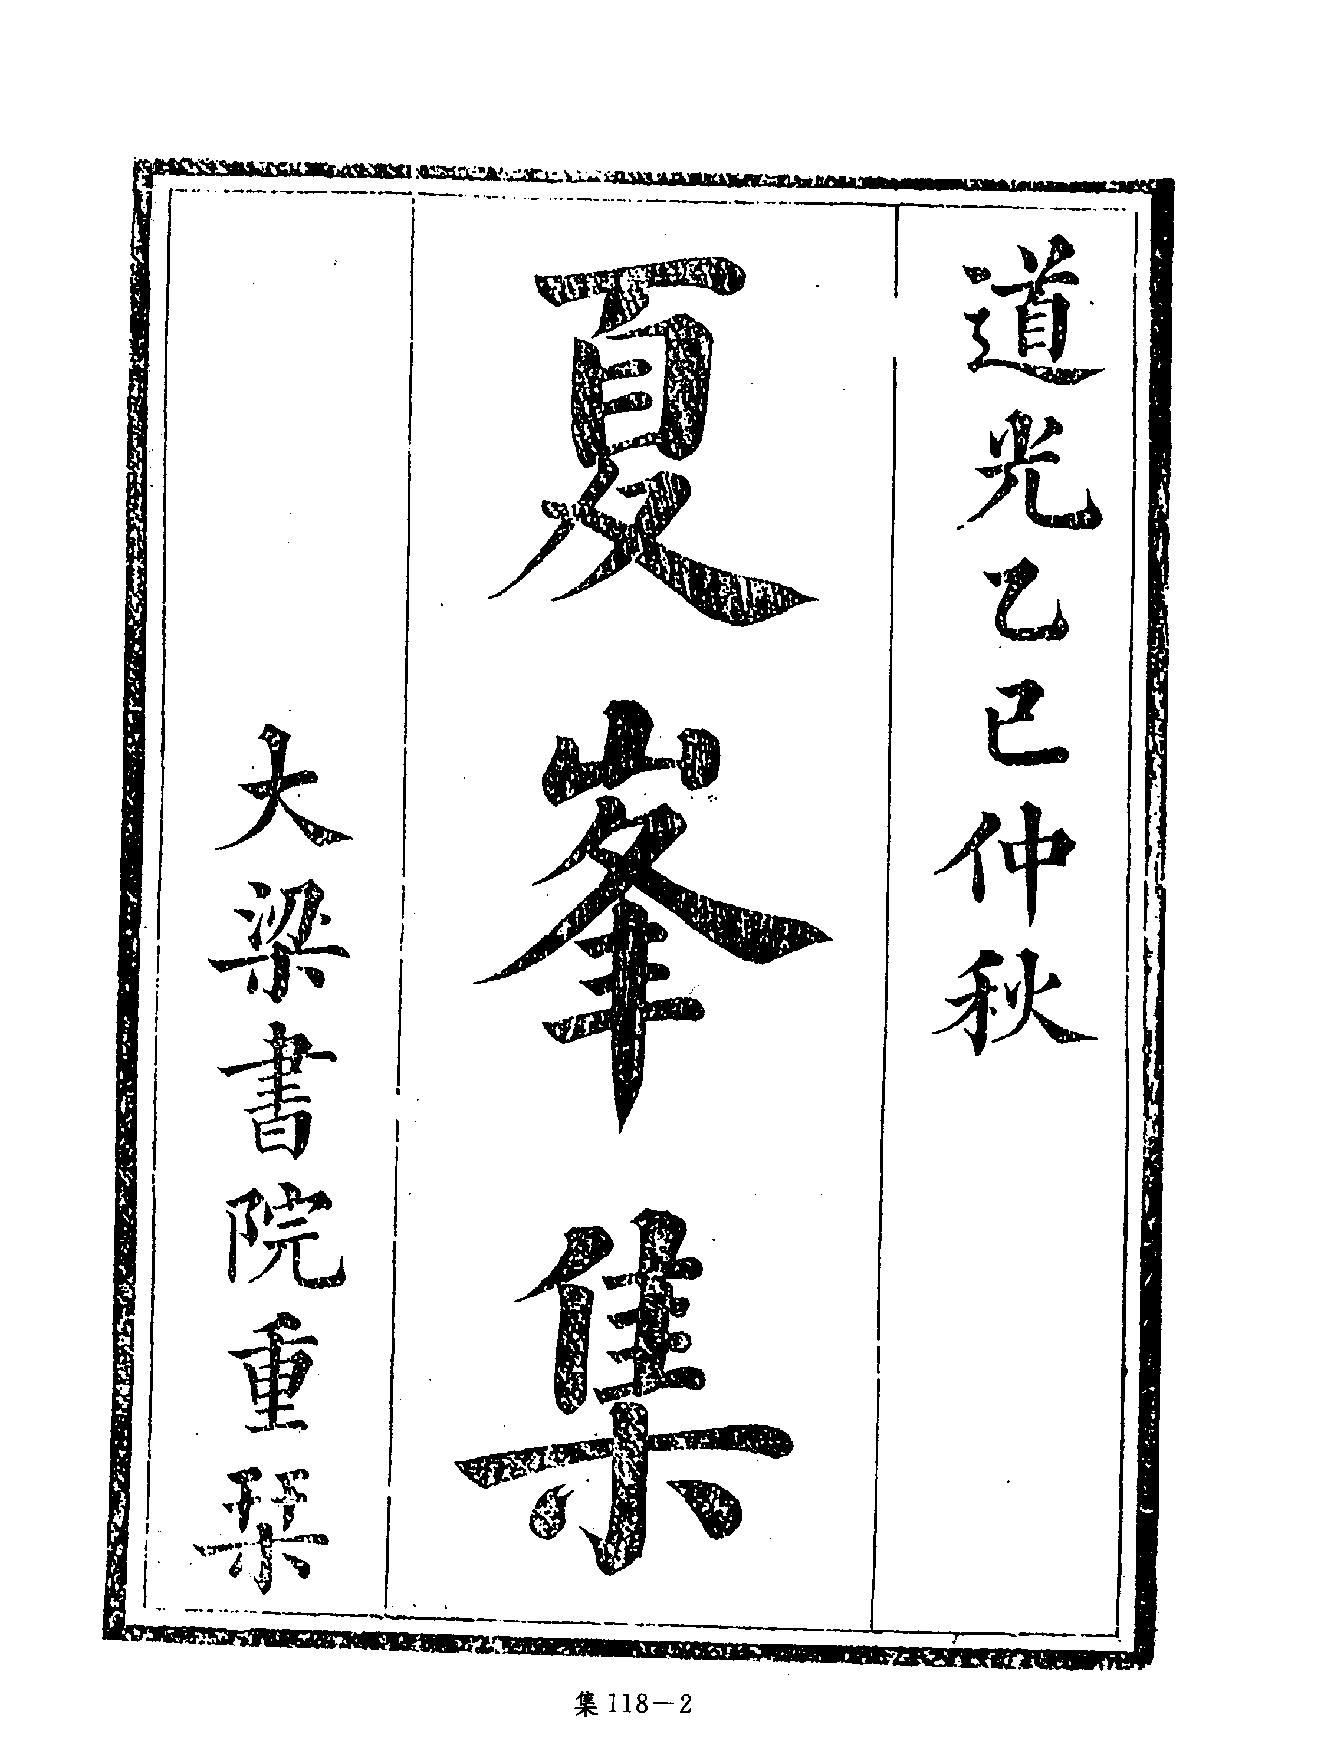 道光乙巳仲秋
夏峯集
大梁書院重栞
集118－2